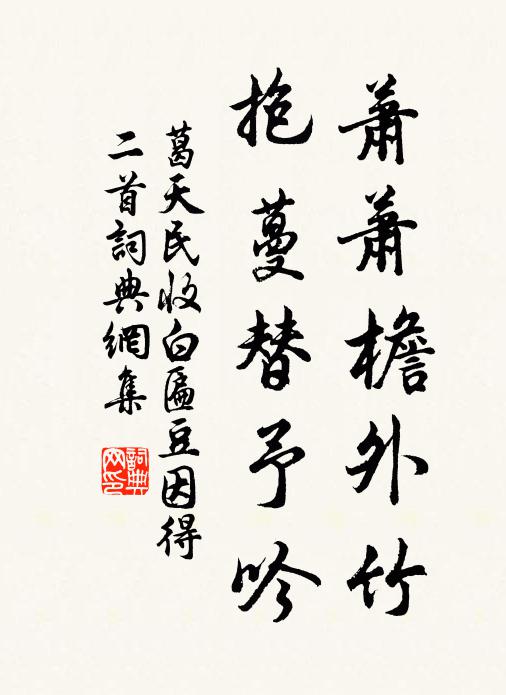 蕭蕭檐外竹
抱蔓替予吟
葛天民收白匾豆因得
二首詞典網集
詞典网印